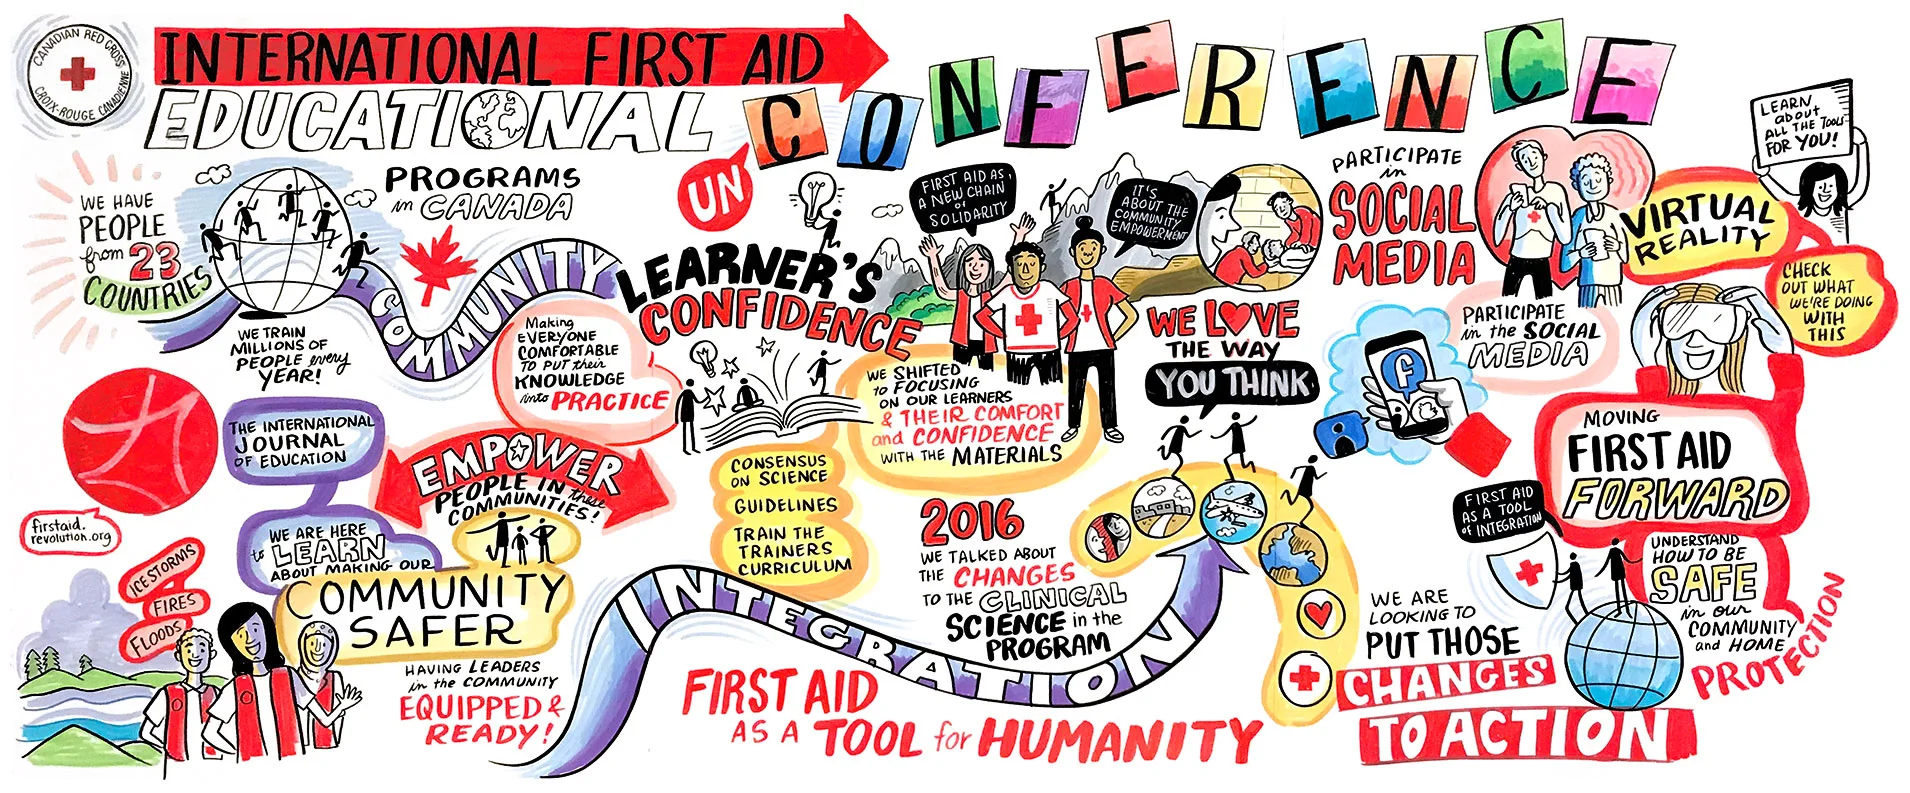 CANADIAN RED CROSS
CROIX-ROUGE CANADIENNE
INTERNATIONAL FIRST AID
EDUCATIONAL
UN
CONFERENCE
WE HAVE
PEOPLE
from 23
COUNTRIES
PROGRAMS
in CANADA
WE TRAIN
MILLIONS OF
PEOPLE every
YEAR!
COMMUNITY
LEARNER'S
CONFIDENCE
Making
EVERYONE
COMFORTABLE
TO PUT their
KNOWLEDGE
into PRACTICE
FIRST AID AS
A NEW CHAIN
of
SOLIDARITY
IT'S
ABOUT THE
COMMUNITY
EMPOWERMENT
WE SHIFTED
to FOCUSING
ON OUR LEARNERS
& THEIR COMFORT
and CONFIDENCE
WITH THE MATERIALS
WE LOVE
THE WAY
YOU THINK
PARTICIPATE
in
SOCIAL
MEDIA
PARTICIPATE
in the SOCIAL
MEDIA
f
VIRTUAL
REALITY
LEARN
about
ALL THE TOOLS
FOR YOU!
CHECK
OUT WHAT
WE'RE DOING
WITH
THIS
MOVING
FIRST AID
FORWARD
firstaid.
revolution.org
THE INTERNATIONAL
JOURNAL
OF EDUCATION
WE ARE HERE
to LEARN
ABOUT MAKING OUR
COMMUNITY
SAFER
EMPOWER
PEOPLE IN these
COMMUNITIES!
ICE STORMS
FIRES
FLOODS
HAVING LEADERS
in the COMMUNITY
EQUIPPED &
READY!
CONSENSUS
ON SCIENCE
GUIDELINES
TRAIN THE
TRAINERS
CURRICULUM
2016
WE TALKED ABOUT
THE CHANGES
TO THE CLINICAL
SCIENCE in the
PROGRAM
INTEGRATION
FIRST AID
AS A TOOL for HUMANITY
FIRST AID
AS A TOOL
of INTEGRATION
UNDERSTAND
HOW TO BE
SAFE
in our
COMMUNITY
and HOME
PROTECTION
WE ARE
LOOKING TO
PUT THOSE
CHANGES
TO ACTION